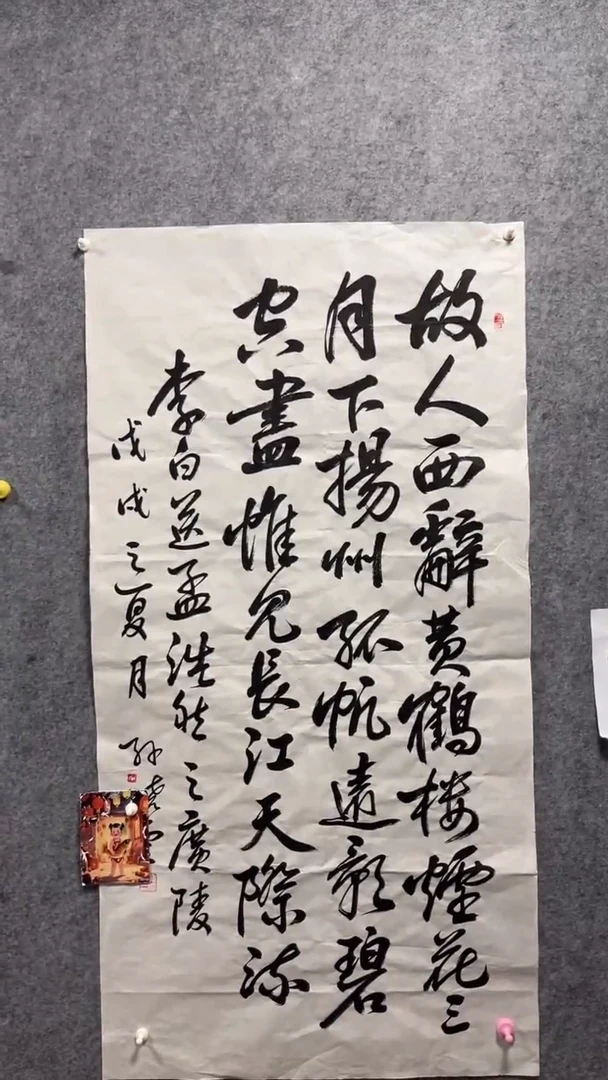 故人西辭黄鶴楼煙花三
月下揚州孤帆遠影碧
空盡惟見長江天際流
李白送孟浩然之廣陵
戊戌之夏月 孙